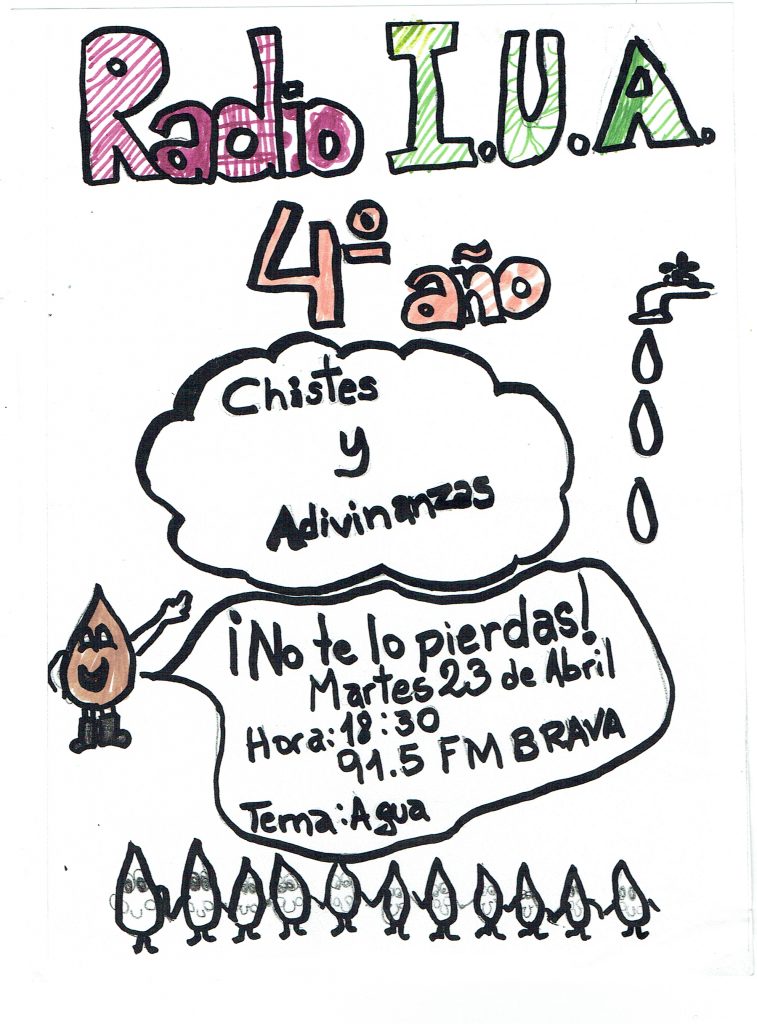 Radio I.U.A.
4º año
Chistes
y
Adivinanzas
¡No te lo pierdas!
Martes 23 de Abril
Hora: 18:30
91.5 FM BRAVA
Tema: Agua